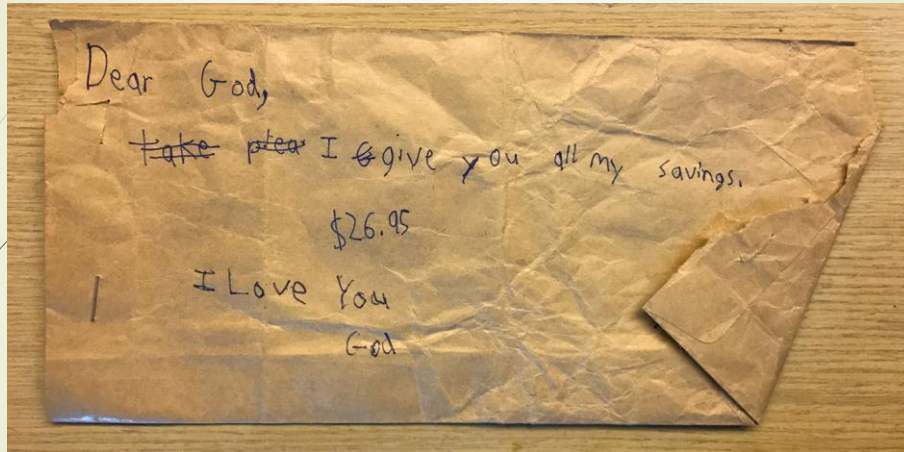 Dear God,
take plea I G give you all my savings.
$26.95
I Love You
God